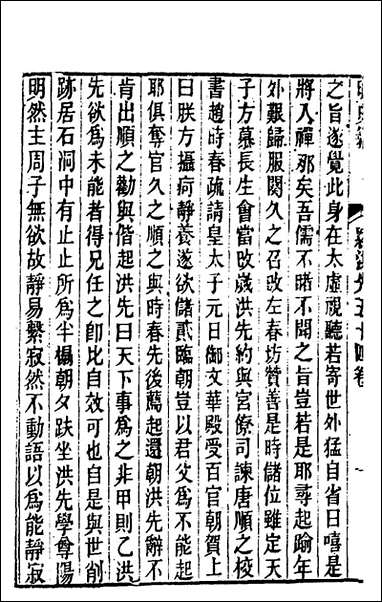 之旨遂覺此身在太虛視聽若寄世外猛自省曰嘻是
將入禪那矣吾儒不睹不聞之旨豈若是耶尋起踰年
外艱歸服闋久之召改左春坊贊善是時儲位雖定天
子方慕長生會當改歲洪先約與宮僚司諫唐順之校
書趙時春疏請皇太子元日御文華殿受百官朝賀上
曰朕方攝疴靜養遂欲儲貳臨朝豈以君父爲不能起
耶俱奪官久之順之與時春先後薦起還朝洪先辭不
肯出順之勸與偕起洪先曰天下事爲之非甲則乙洪
先欲爲未能者得兄任之比自效可也自是與世削
跡居石洞中有止止所爲半榻朝夕趺坐洪先學尊陽
明然主周子無欲故靜易繫寂然不動語以爲能靜寂